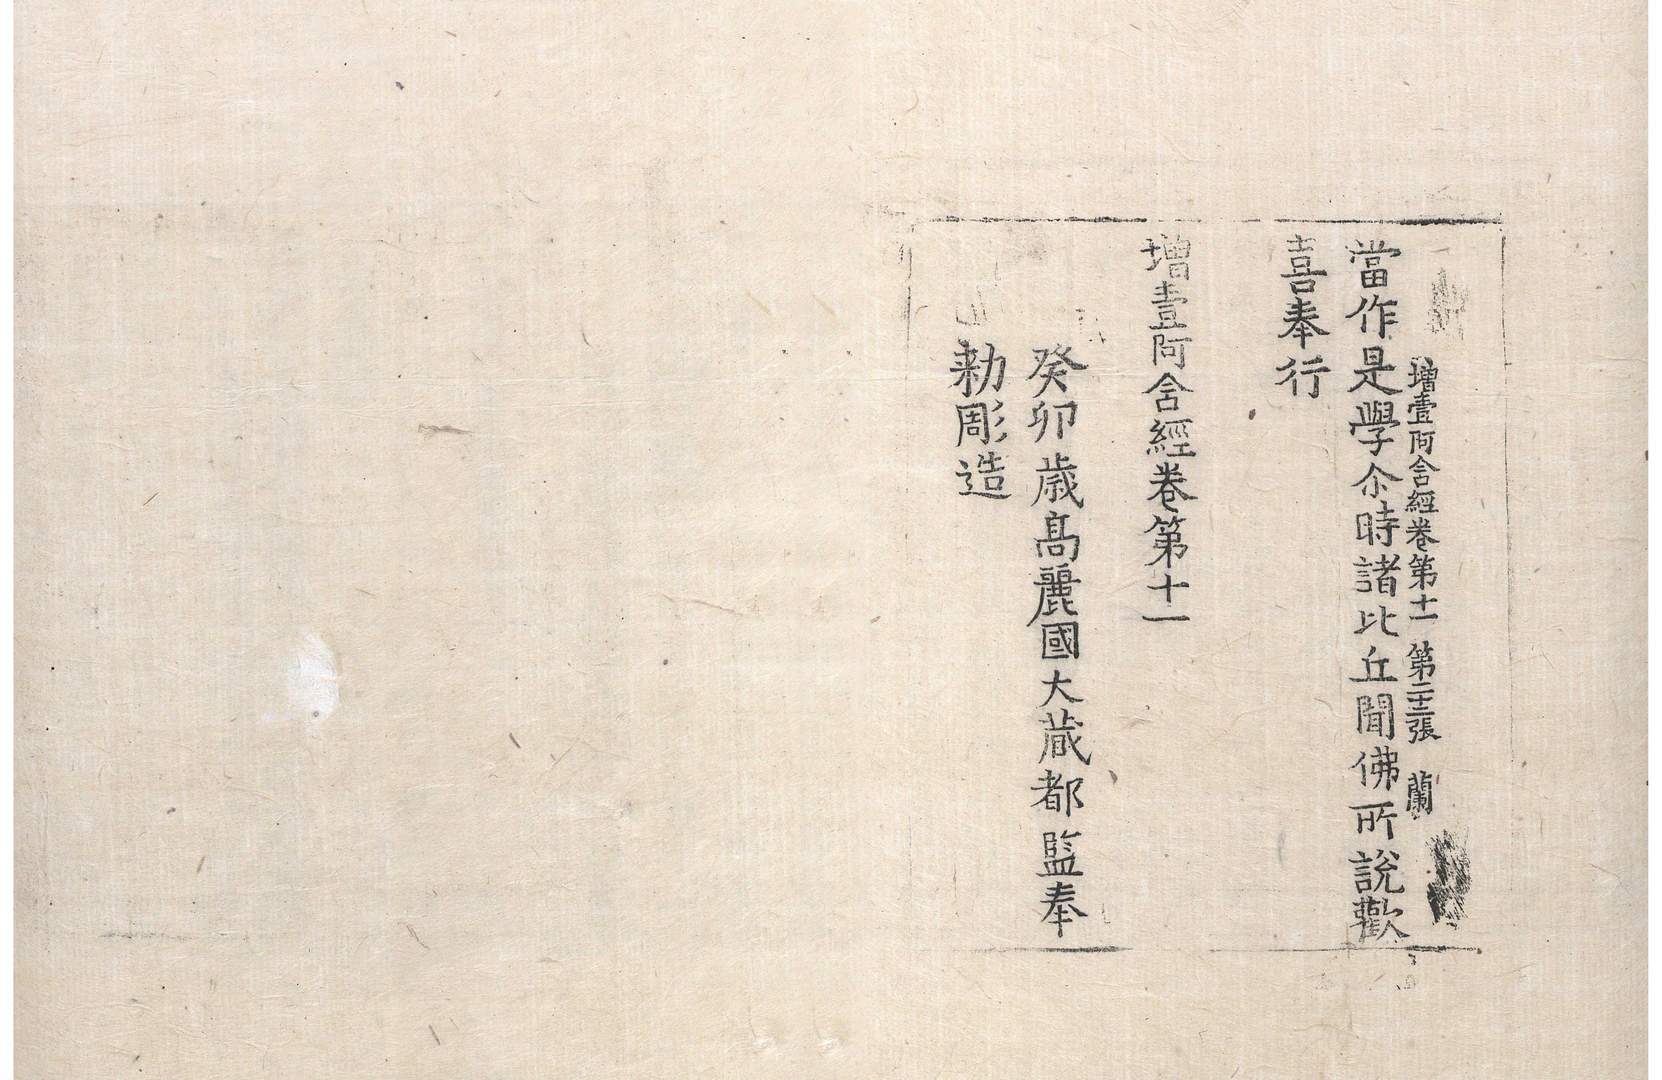 增壹阿含經卷第十一 第二十三張 蘭
當作是學尒時諸比丘聞佛所說歡
喜奉行
增壹阿含經卷第十一
癸卯歲高麗國大藏都監奉
勑彫造